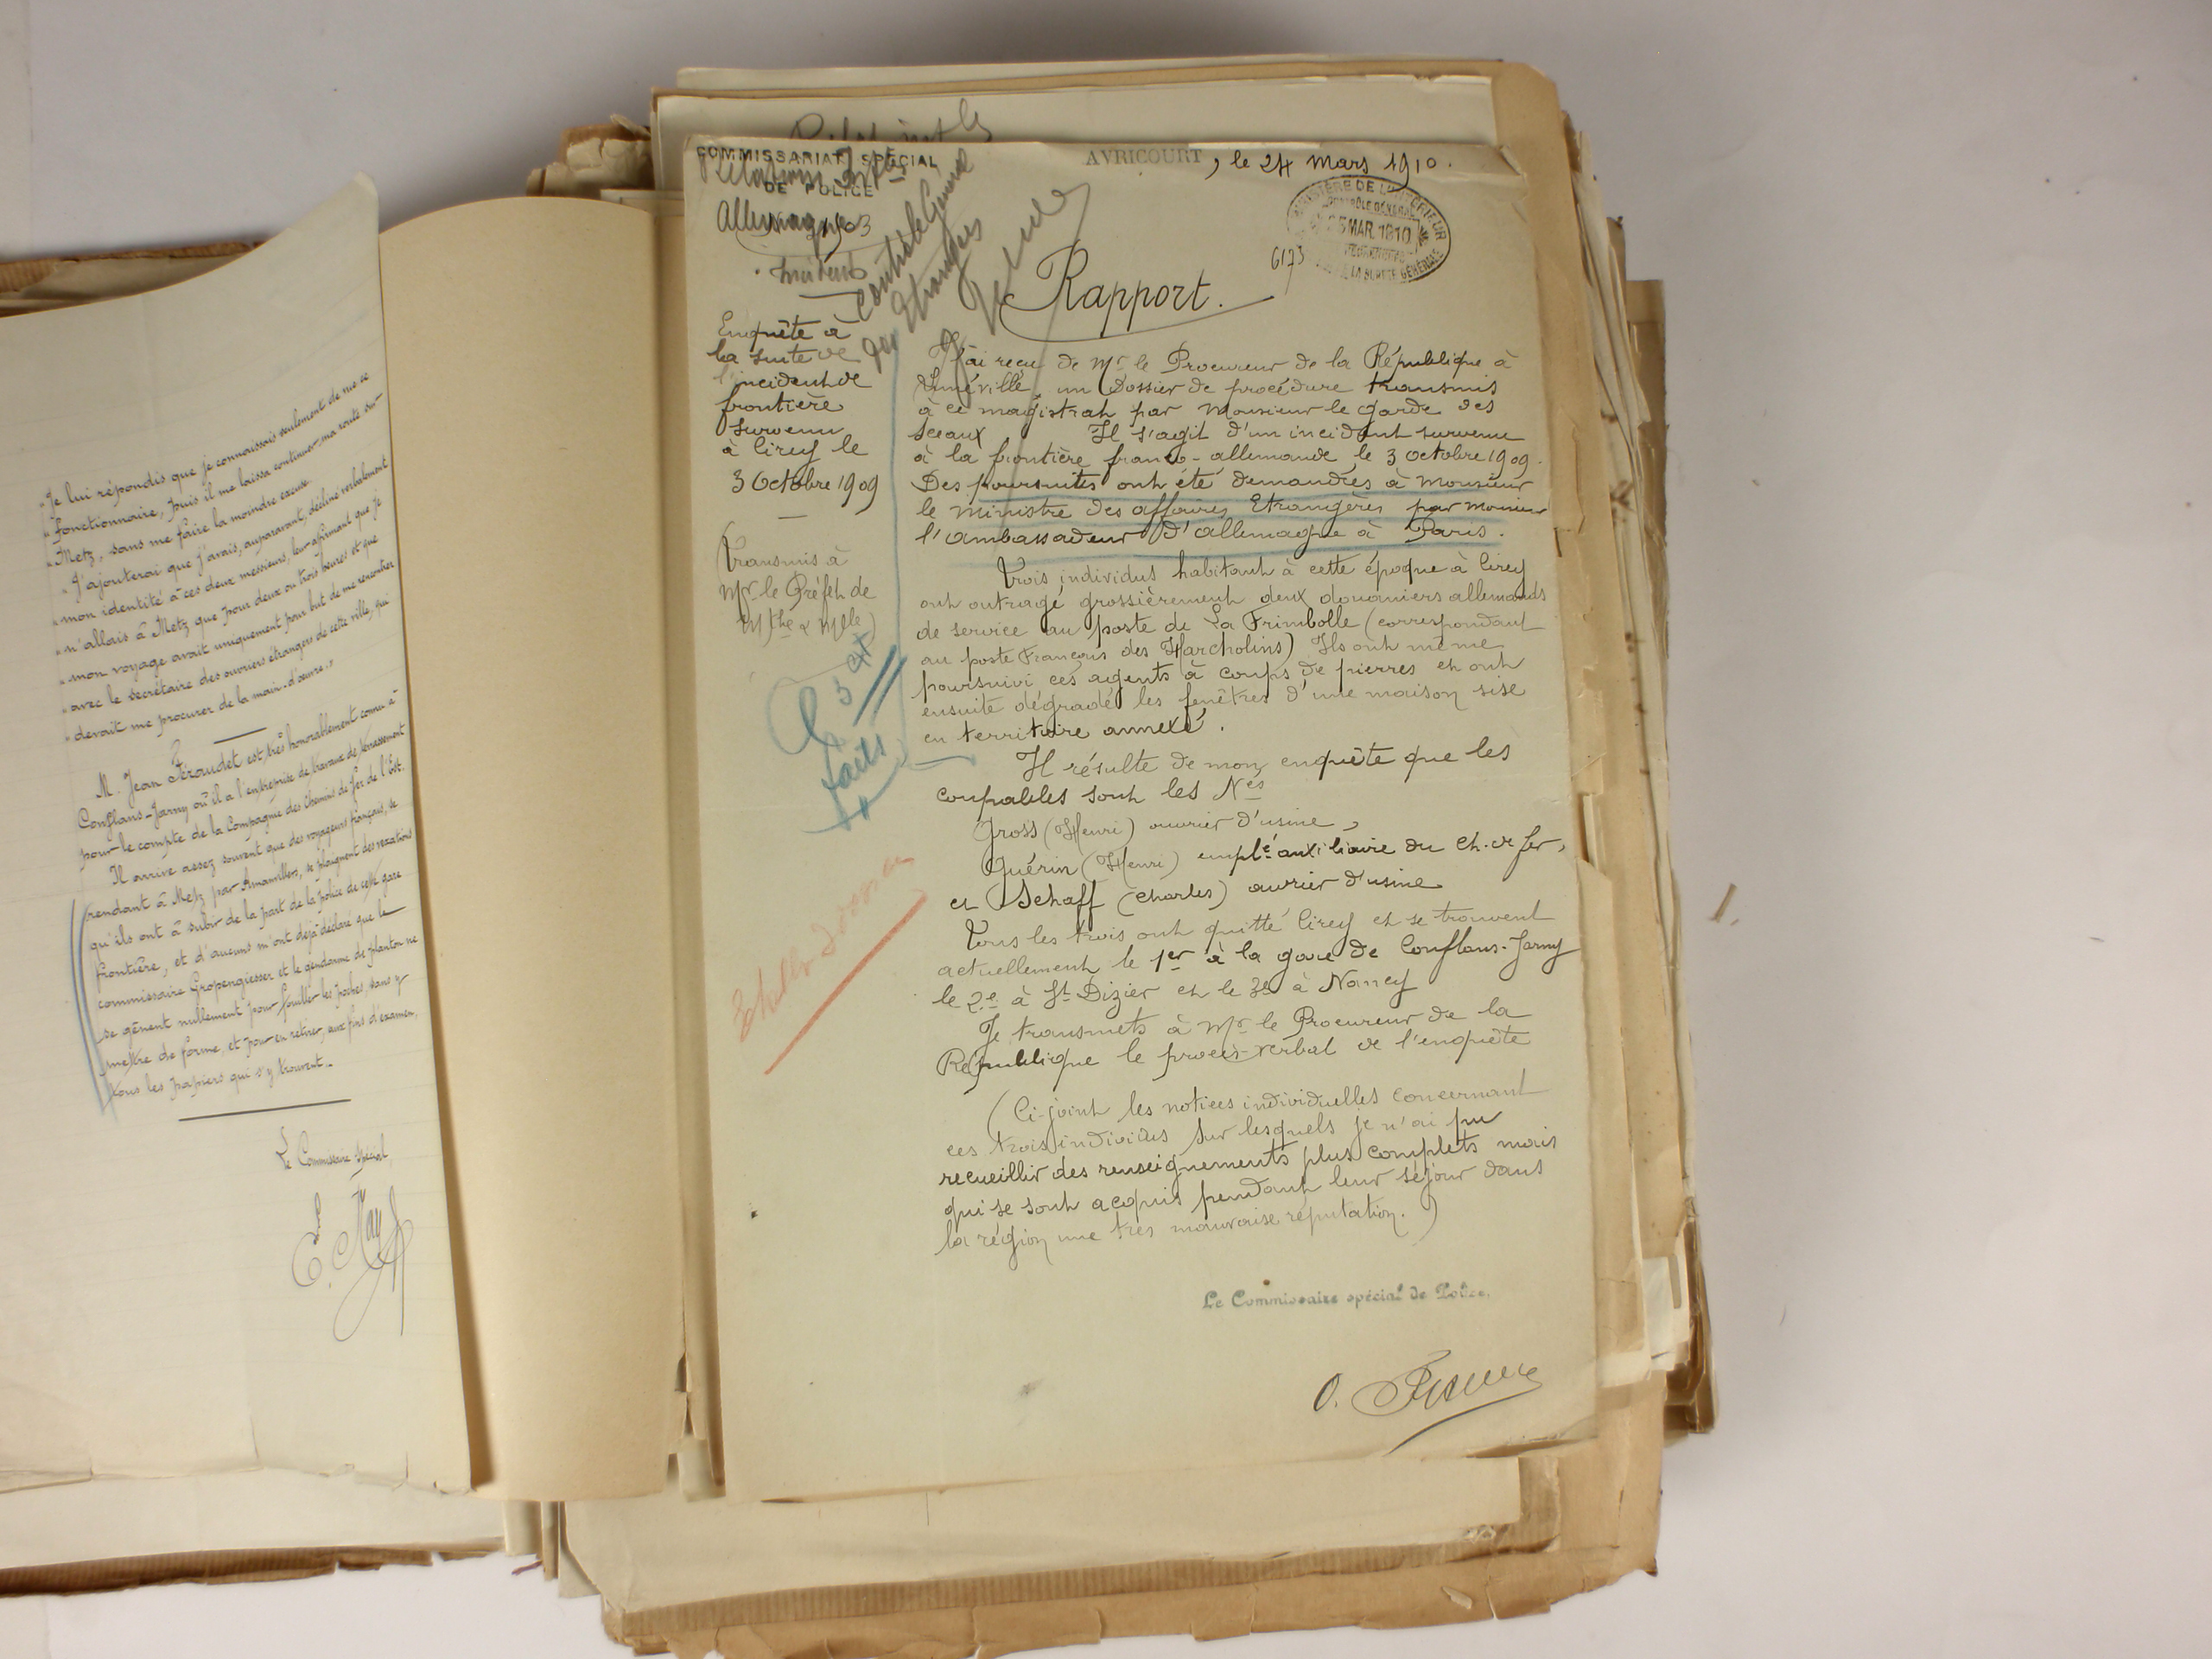 "Je lui répondis que je connaissais seulement de nos ce
"fonctionnaire, puis il me laissa continuer ma route sur
"Metz, sans me faire la moindre excuse.
"J'ajouterai que j'avais, auparavant, décliné verbalement
"mon identité à ces deux messieurs, leur affirmant que je
"n'allais à Metz que pour deux ou trois heures et que
"mon voyage avait uniquement pour but de me rencontrer
"avec le secrétaire des ouvriers étrangers de cette ville, qui
"devait me procurer de la main-d'œuvre."
M. Jean Féraudet est très honorablement connu à
Conflans-Jarny où il a l'entreprise de travaux de terrassement
pour le compte de la Compagnie des Chemins de fer de l'Est.
Il arrive assez souvent que des voyageurs français, se
rendant à Metz par Amanvillers, se plaignent des vexations
qu'ils ont à subir de la part de la police de cette gare
frontière, et d'aucuns m'ont déjà déclaré que le
commissaire Gropengiesser et le gendarme de planton ne
se gênent nullement pour fouiller les poches, sans y
mettre de forme, et pour en retirer, aux fins d'examen,
tous les papiers qui s'y trouvent.
Le Commissaire spécial
COMMISSARIAT SPÉCIAL
DE POLICE
Relations
Allemagne
Incidents
Contrôle Général
des Etrangers
AVRICOURT, le 24 mars 1910.
MINISTÈRE DE L'INTÉRIEUR
CONTRÔLE GÉNÉRAL
MAR 1910
DE LA SURETÉ GÉNÉRALE
6173
Rapport.
Enquête à
la suite de
l'incident de
frontière
survenu
à Cirey le
3 Octobre 1909
(Transmis à
Mr le Préfet de
Mthe & Mlle)
J'ai reçu de Mr le Procureur de la République à
Lunéville, un Dossier de procédure transmis
à ce magistrat par Monsieur le Garde des
Sceaux Il s'agit d'un incident survenu
à la frontière franco-allemande le 3 octobre 1909.
Des poursuites ont été demandées à Monsieur
le Ministre des affaires Etrangères par Monsieur
l'ambassadeur d'allemagne à Paris.
Trois individus habitant à cette époque à Cirey
ont outragé grossièrement deux douaniers allemands
de service au poste de La Frimbolle (correspondant
au poste Français des Harcholins) Ils ont même
poursuivi ces agents à coups de pierres et ont
ensuite dégradé les fenêtres d'une maison sise
en territoire annexé.
Il résulte de mon enquête que les
coupables sont les Nés
Gross (Henri) ouvrier d'usine,
Guérin (Henri) emplé auxiliaire du ch. de fer,
et Schaff (Charles) ouvrier d'usine
Tous les trois ont quitté Cirey et se trouvent
actuellement le 1er à la gare de Conflans-Jarny
le 2e à St Dizier et le 3e à Nancy
Je transmets à Mr le Procureur de la
République le procès-verbal de l'enquête
(Ci-joint les notices individuelles concernant
ces trois individus sur lesquels je n'ai pu
recueillir des renseignements plus complets mais
qui se sont acquis pendant leur séjour dans
la région une très mauvaise réputation.)
Le Commissaire spécial de Police,